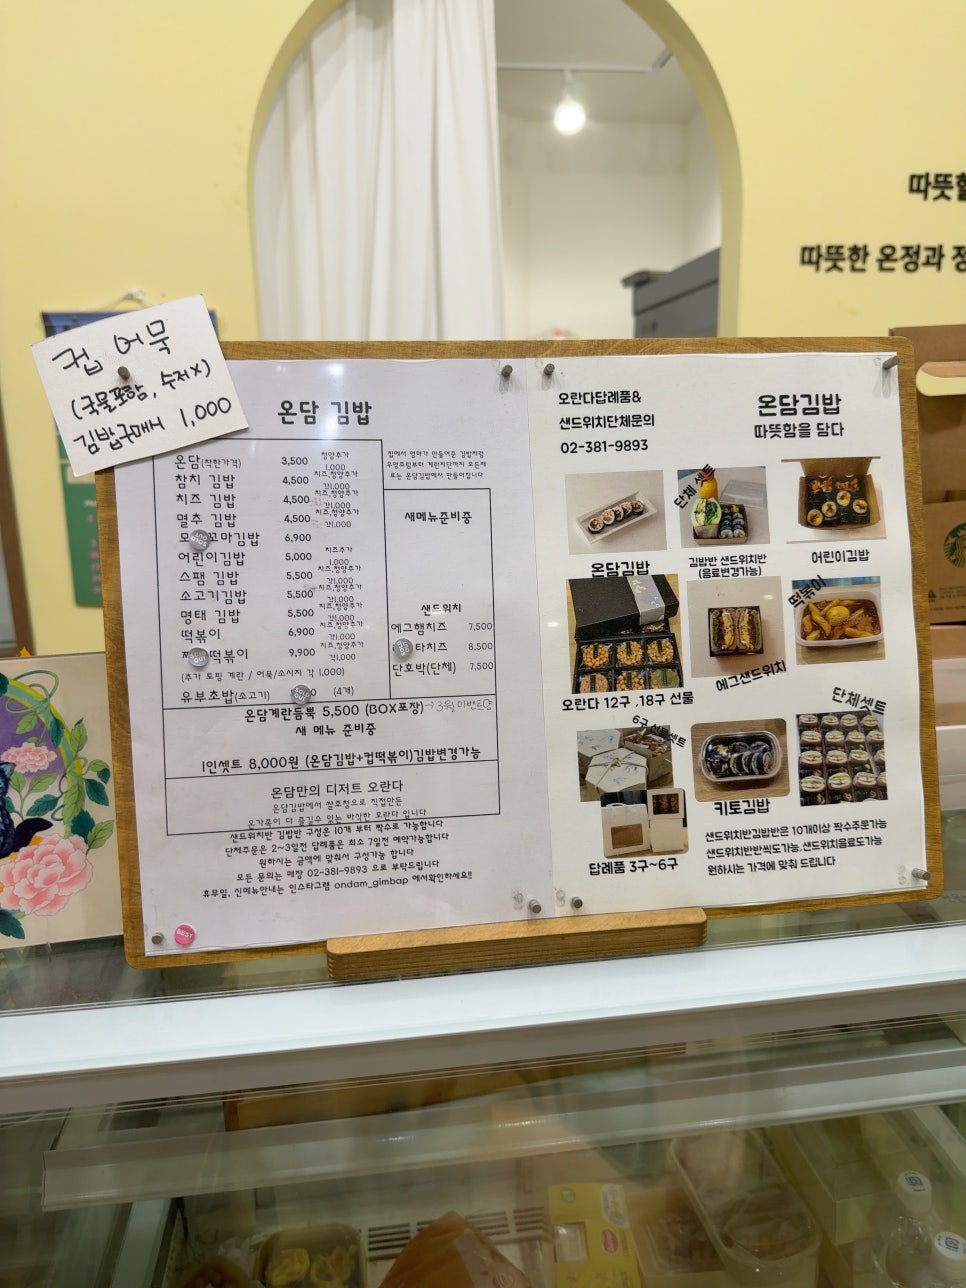 따뜻한 온정과
컵 어묵
(국물포함, 수저X)
김밥구매시 1,000
온담 김밥
온담(착한가격) 3,500 청양추가 1,000
참치 김밥 4,500 치즈,청양추가 각1,000
치즈 김밥 4,500 치즈,청양추가 각1,000
멸추 김밥 4,500 치즈,청양추가 각1,000
꼬마김밥 6,900
어린이김밥 5,000 치즈추가 1,000
스팸 김밥 5,500 치즈,청양추가 각1,000
소고기김밥 5,500 치즈,청양추가 각1,000
명태 김밥 5,500 치즈,청양추가 각1,000
떡볶이 6,900 치즈,청양추가 각1,000
떡볶이 9,900
(추가 토핑 계란 / 어묵/소시지 각 1,000)
유부초밥(소고기) (4개)
SOLD OUT
집에서 엄마가 만들어준 김밥처럼
우엉조림부터 계란지단까지 모든재
료는 온담김밥에서 만들어집니다
새메뉴준비중
샌드위치
에그햄치즈 7,500
타치즈 8,500
단호박(단체) 7,500
온담계란듬뿍 5,500 (BOX포장)→3월 이벤트
새 메뉴 준비중
1인셋트 8,000원 (온담김밥+컵떡볶이)김밥변경가능
온담만의 디저트 오란다
온담김밥에서 쌀조청으로 직접만든
온가족이 다 즐길수 있는 바삭한 오란다 입니다
샌드위치반 김밥반 구성은 10개 부터 짝수로 가능합니다
단체주문은 2~3일전 답례품은 최소 7일전 예약가능합니다
원하시는 금액에 맞춰서 구성가능 합니다
모든 문의는 매장 02-381-9893 으로 부탁드립니다
휴무일, 신메뉴안내는 인스타그램 ondam_gimbap 에서확인하세요!!
BEST
오란다답례품&
샌드위치단체문의
02-381-9893
온담김밥
따뜻함을 담다
단체 세트
온담김밥
김밥반 샌드위치반
(음료변경가능)
어린이김밥
떡볶이
오란다 12구 .18구 선물
에그샌드위치
단체세트
6구 선물세트
키토김밥
답례품 3구~6구
샌드위치반김밥반은 10개이상 짝수주문가능
샌드위치반반씩도가능,샌드위치음료도가능
원하시는 가격에 맞춰 드립니다